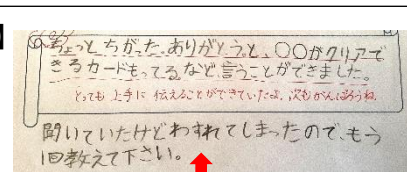 ちょっとちがった、ありがとうと、○○がクリアで
きるカードもってるなど言うことができました。
とっても上手に伝えることができていたよ。次もがんばろうね。
聞いていたけどわすれてしまったので、もう
1回教えて下さい。